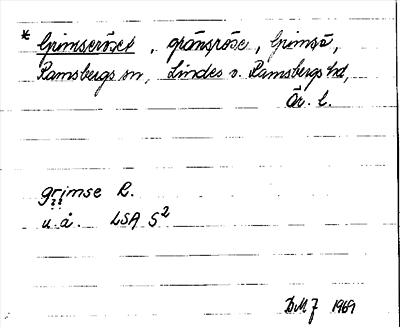 * Grimseröset, gränsröse, Grimsö,
Ramsbergs sn, Lindes o. Ramsbergs hd,
Ör. l.
grimse R.
u. å. LSA S2
DMJ 1969